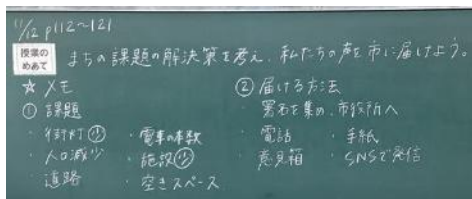 11/12 p112~121
授業のめあて まちの課題の解決策を考え、私たちの声を市に届けよう。
☆メモ
① 課題
・街灯少 ・電車の本数
・人口減少 ・施設少
・道路 ・空きスペース
② 届ける方法
署名を集め、市役所へ
・電話 ・手紙
・意見箱 ・SNSで発信